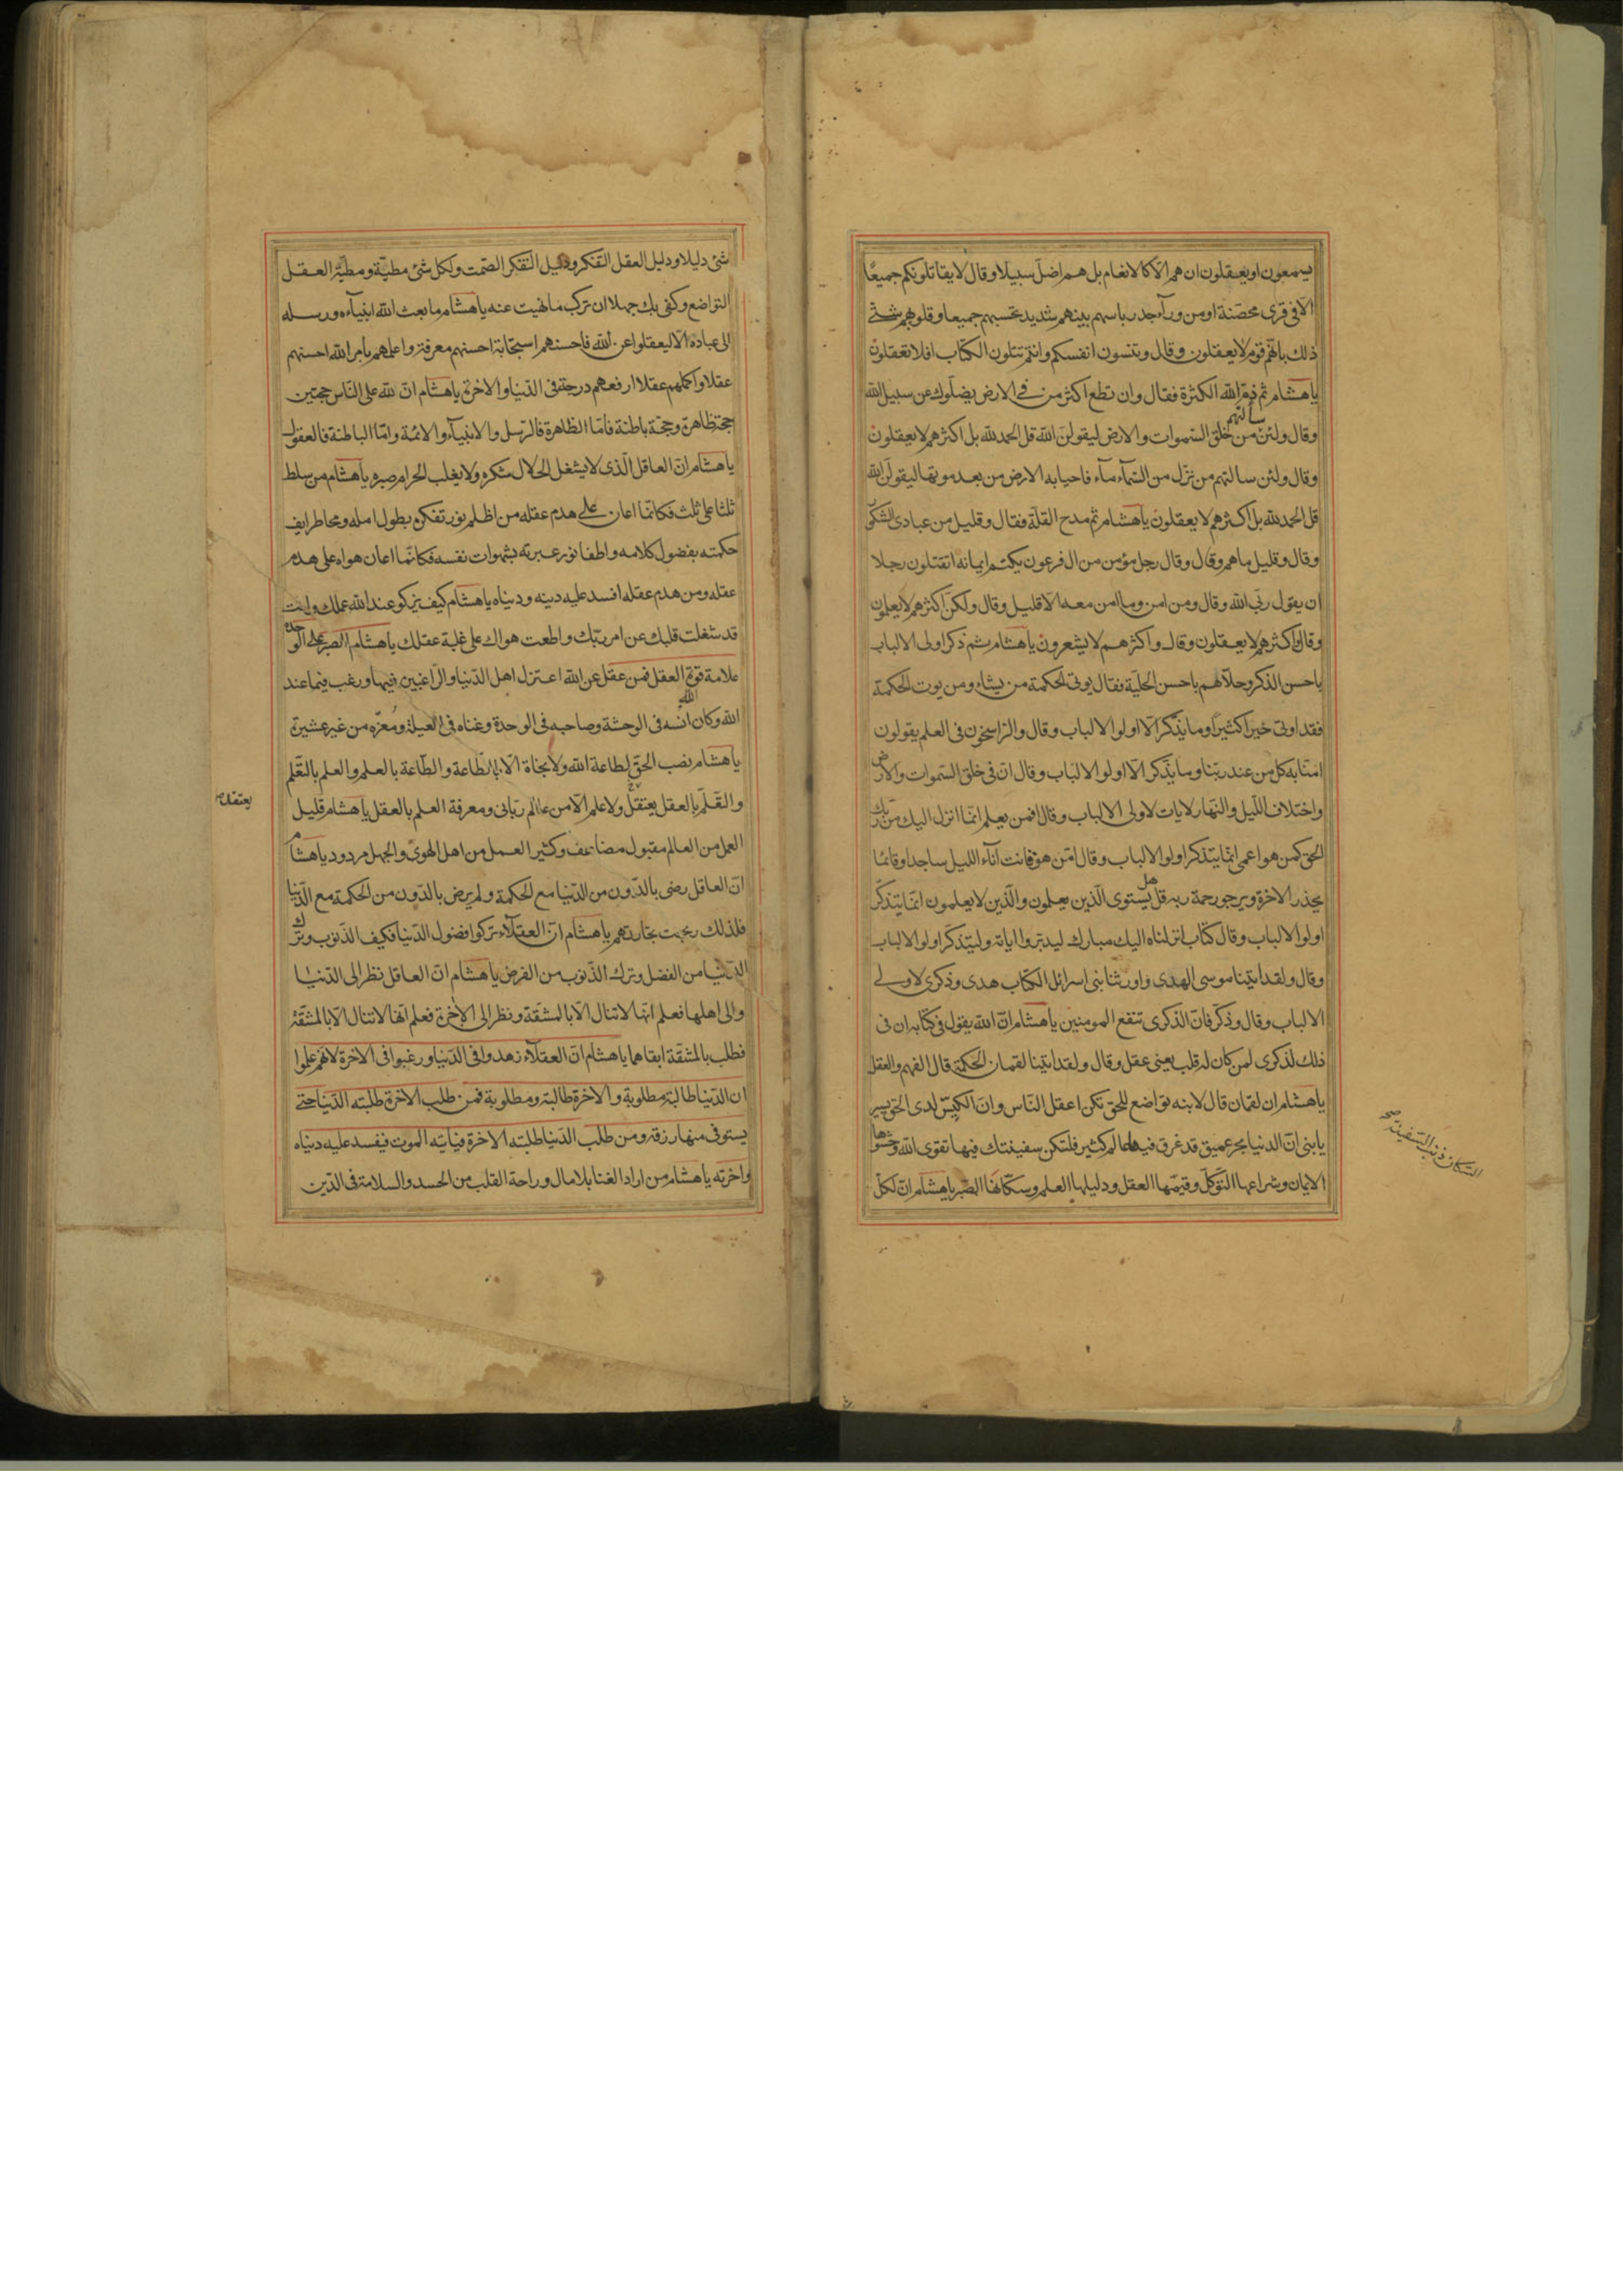 يسمعون او يعقلون ان هم الا كالانعام بل هم اضل سبيلا وقال لا يقاتلونكم جميعًا
الا فى قرى محصّنة او من ورآء جدر باسهم بينهم شديد تحسبهم جميعا وقلوبهم شتى
ذلك بانّهم قوم لا يعقلون وقال وتنسون انفسكم وانتم تتلون الكتاب افلا تعقلون
يا هشام ثم ذمّ الله الكثرة فقال وان تطع اكثر من فى الارض يضلوك عن سبيل الله
وقال ولئن سالتهم من خلق السموات والارض ليقولنّ الله قل الحمد لله بل اكثرهم لا يعقلون
وقال ولئن سالتهم من نزّل من السّمآء مآء فاحيا به الارض من بعد موتها ليقولنّ الله
قل الحمد لله بل اكثرهم لا يعقلون يا هشام ثم مدح القلّة فقال وقليل من عبادى الشكور
وقال وقليل ما هم وقال وقال رجل مؤمن من ال فرعون يكتم ايمانه اتقتلون رجلا
ان يقول ربّى الله وقال ومن امن وما امن معه الا قليل وقال ولكنّ اكثرهم لا يعلمون
وقال واكثرهم لا يعقلون وقال واكثرهم لا يشعرون يا هشام ثم ذكر اولى الالباب
باحسن الذكر وحلّاهم باحسن الحلية فقال يوتى الحكمة من يشاء ومن يوت الحكمة
فقد اوتى خيرا كثيرا وما يذّكّر الّا اولوا الالباب وقال والراسخون فى العلم يقولون
امنّا به كل من عند ربّنا وما يذّكر الّا اولوا الالباب وقال انّ فى خلق السّموات والارض
واختلاف اللّيل والنّهار لايات لاولى الالباب وقال افمن يعلم انّما انزل اليك من ربك
الحق كمن هو اعمى انّما يتذكر اولوا الالباب وقال امّن هو قانت آناء الليل ساجدا وقائما
يحذر الاخرة ويرجو رحمة ربه قل هل يستوى الّذين يعلمون والّذين لا يعلمون انّما يتذكّر
اولوا الالباب وقال كتاب انزلناه اليك مبارك ليدبّروا اياته وليتذكّر اولوا الالباب
وقال ولقد اتينا موسى الهدى واورثنا بنى اسرائل الكتاب هدى وذكرى لاولى
الالباب وقال وذكّر فانّ الذكرى تنفع المومنين يا هشام انّ الله يقول فى كتابه ان فى
ذلك لذكرى لمن كان له قلب يعنى عقل وقال ولقد اتينا لقمان الحكمة قال الفهم والعقل
يا هشام ان لقمان قال لابنه تواضع للحق تكن اعقل النّاس وانّ الكيّس لدى الحق يسير
يا بنى انّ الدنيا بحر عميق قد غرق فيها عالم كثير فلتكن سفينتك فيها تقوى الله وحشوها
الايمان وشراعها التوكّل وقيّمها العقل ودليلها العلم وسكّانها الصّبر يا هشام انّ لكلّ
السكان ذنب السفينة صح
شئ دليلا ودليل العقل التفكر ودليل التفكر الصّمت ولكل شئ مطيّة ومطيّة العقل
التواضع وكفى بك جهلا ان تركب ما نهيت عنه يا هشام ما بعث الله انبيآءه ورسله
الى عباده الّا ليعقلوا عن الله فاحسنهم استجابة احسنهم معرفة واعلمهم بامر الله احسنهم
عقلا واكملهم عقلا ارفعهم درجة فى الدّنيا والاخرة يا هشام انّ لله على النّاس حجّتين
حجّة ظاهرة وحجّة باطنة فامّا الظاهرة فالرّسل والانبيآء والائمة وامّا الباطنة فالعقول
يا هشام انّ العاقل الّذى لا يشغل الحلال شكره ولا يغلب الحرام صبره يا هشام من سلط
ثلثا على ثلث فكانّما اعان على هدم عقله من اظلم نور تفكره بطول امله ومحا طرايف
حكمته بفضول كلامه واطفا نور عبرته بشهوات نفسه فكانّما اعان هواه على هدم
عقله ومن هدم عقله افسد عليه دينه ودنياه يا هشام كيف يزكو عند الله عملك وانت
قد شغلت قلبك عن امر ربّك واطعت هواك على غلبة عقلك يا هشام الصبر على الوحدة
علامة قوة العقل فمن عقل عن الله اعتزل اهل الدّنيا والراغبين فيها ورغب فيما عند
الله وكان الله انسه فى الوحشة وصاحبه فى الوحدة وغناه فى العيلة ومُعزّه من غير عشيرة
يا هشام نصب الحقّ لطاعة الله ولا نجاة الّا بالطّاعة والطّاعة بالعلم والعلم بالتّعلّم
والتّعلّم بالعقل يعتقل ولا علم الّا من عالم ربّانى ومعرفة العلم بالعقل يا هشام قليل
يعتقد
العمل من العالم مقبول مضاعف وكثير العمل من اهل الهوى والجهل مردود يا هشام
انّ العاقل رضى بالدّون من الدّنيا مع الحكمة ولم يرض بالدّون من الحكمة مع الدّنيا
فلذلك ربحت تجارتهم يا هشام انّ العقلآء تركوا فضول الدّنيا فكيف الذّنوب وترك
الدّنيا من الفضل وترك الذّنوب من الفرض يا هشام انّ العاقل نظر الى الدّنيا
والى اهلها فعلم انّها لا تنال الّا بالمشقّة ونظر الى الاخرة فعلم انّها لا تنال الّا بالمشقّة
فطلب بالمشقّة ابقاهما يا هشام انّ العقلآء زهدوا فى الدّنيا ورغبوا فى الاخرة لانّهم علموا
ان الدّنيا طالبة مطلوبة والاخرة طالبة ومطلوبة فمن طلب الاخرة طلبته الدّنيا حتى
يستوفى منها رزقه ومن طلب الدّنيا طلبته الاخرة فياتيه الموت فيفسد عليه دنياه
واخرته يا هشام من اراد الغنا بلا مال وراحة القلب من الحسد والسلامة فى الدّين